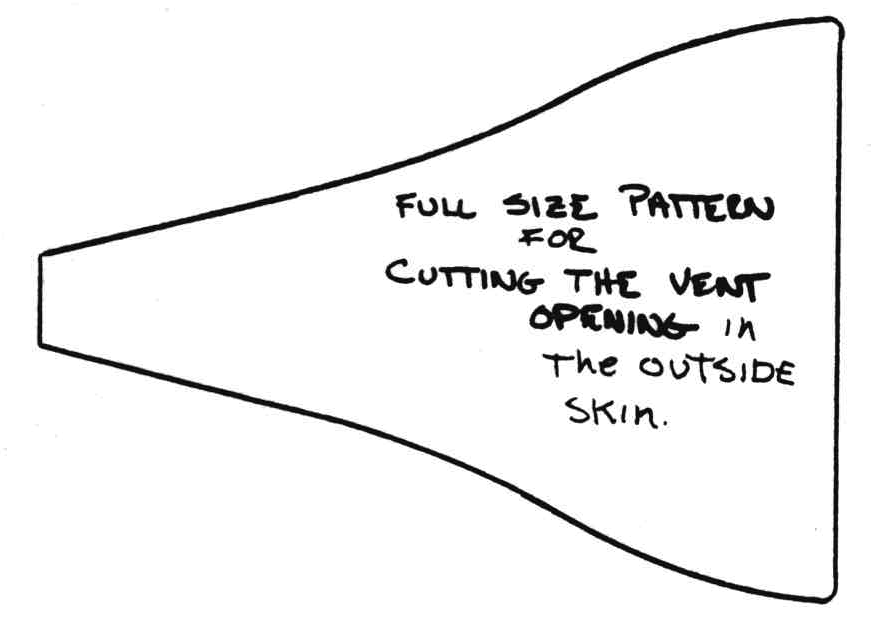 FULL SIZE PATTERN
FOR
CUTTING THE VENT
OPENING in
The OUTSIDE
SKIn.